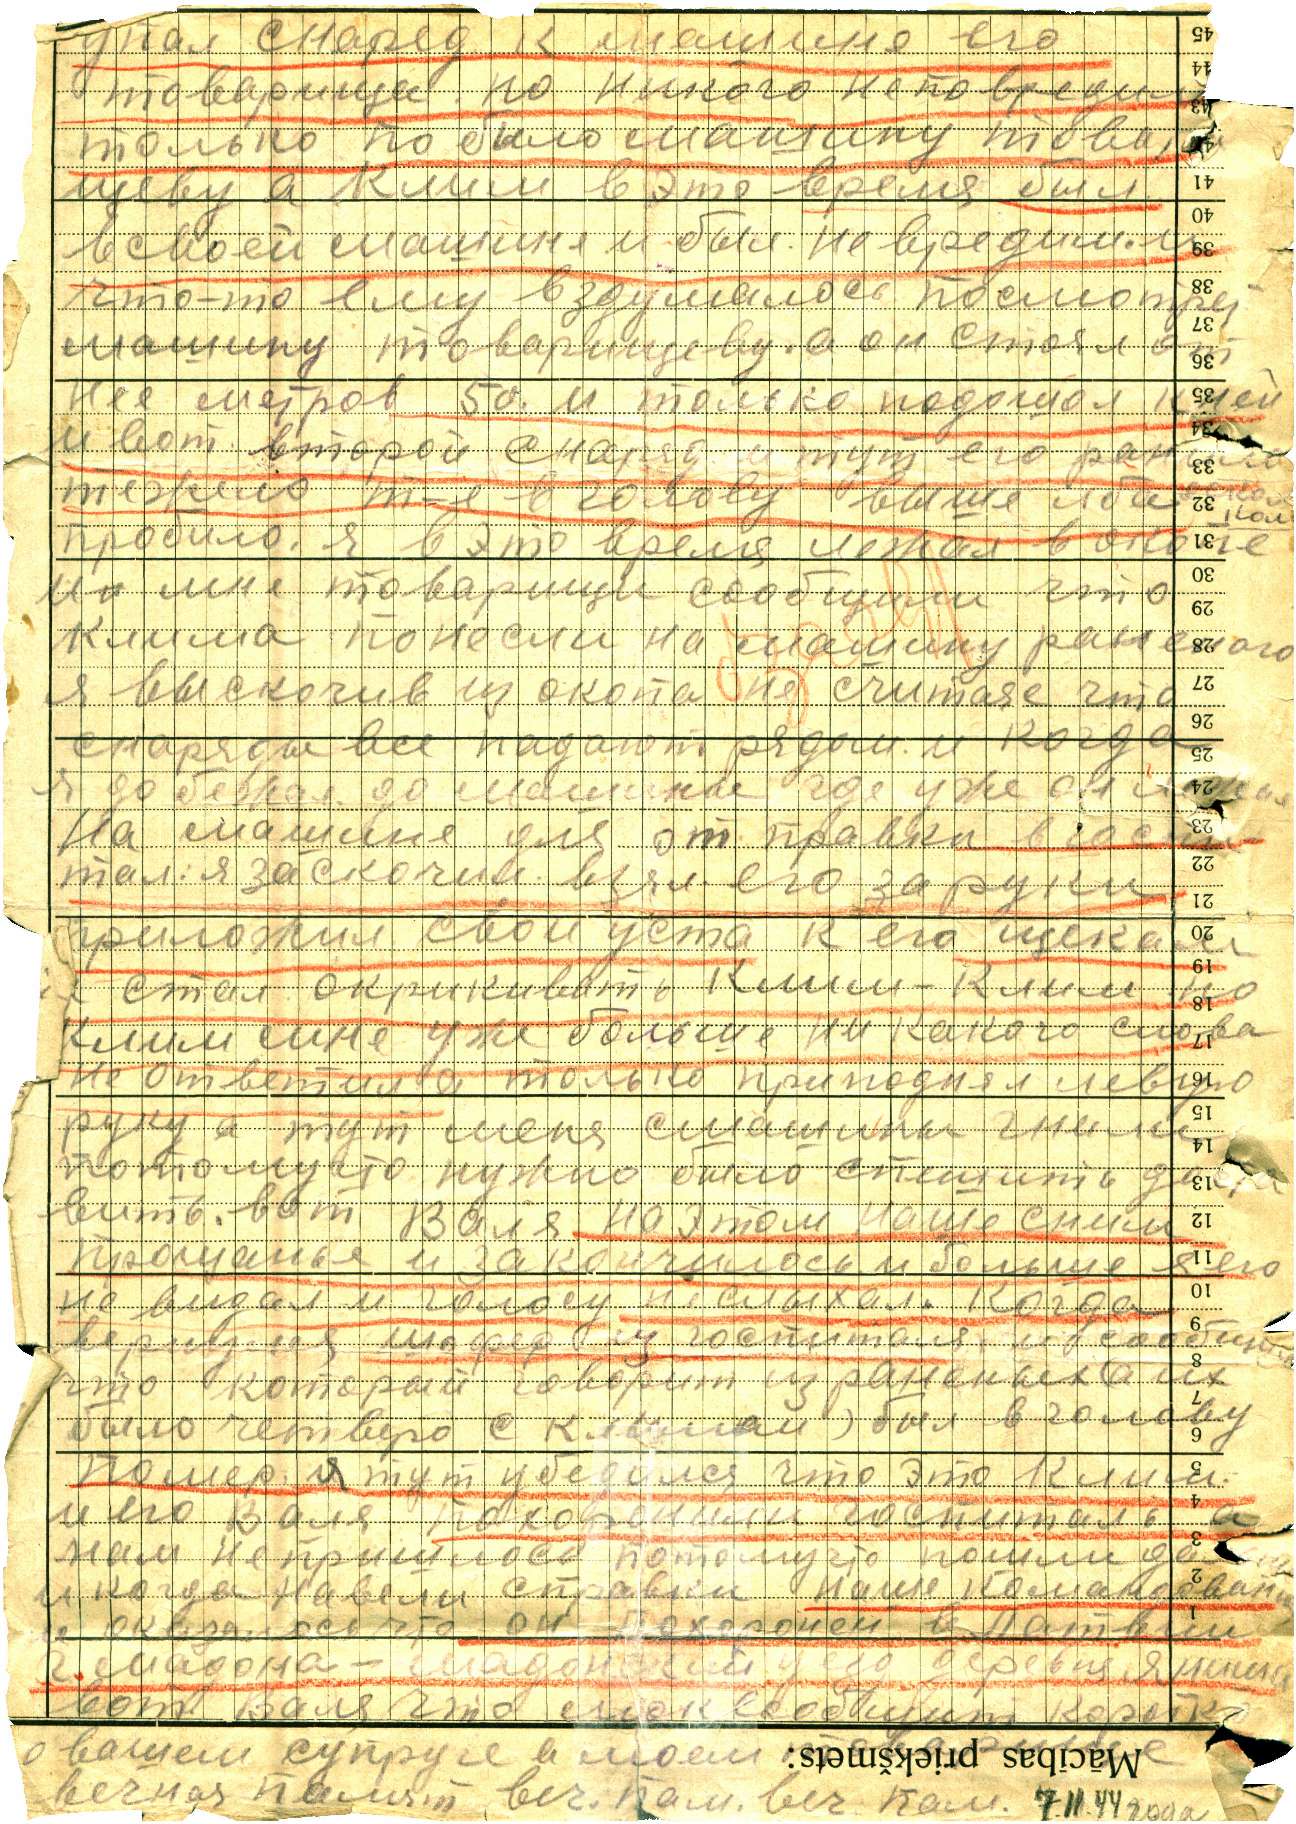 упал снаряд к машине его
товарища. но никого неповредил
только по било машину това
щеву а Клим в это время был
в своей машине и был. невредим. и
что-то ему вздумалось посмотреть
машину товарищеву. а он стоял от
нее метров 50. и только подошол к ней
и вот второй снаряд и тут его ранило
тежело т-е в голову выше лба
пробило. я в это время лежал в окопе
и мне товарищи сообщили что
Клима понесли на машину раненого
я выскочив из окопа не считаяс что
снаряды все падают рядом. и когда
я до бежал. до машины где уже он лежал
на машине для от правки в госпи
тал: я заскочил. взял. его за руки
приложил свои уста к его щекам
и стал окрикивать Клим-Клим но
Клим мне уже больше ни какого слова
не ответил а только приподнял левую
руку а тут меня смашины гнили
потомучто нужно было спешить доста
вить. вот Валя на этом наше сним
прощанье и закончилось и больше я его
не видал и голосу неслыхал. Когда
вернулся шофер из госпиталя и сообщил
что который говорит из раненых (а их
было четверо с Климам) был в голову
помер. я тут убедился что это Клим.
и его Валя похоронили госпиталь а
нам непришлось потомучто пошли дальше
и когда навели справки наше командование
и оказалось что он похоронен в Латвии
г. мадона - мадонский уезд деревня
вот Валя что смок сообщит коротко
о вашем супруге и моем товарище
вечная памят веч. пам. веч. пам. 7.11.44 года
Mācības priekšmets:
45
44
43
42
41
40
39
38
37
36
35
34
33
32
31
30
29
28
27
26
25
24
23
22
21
20
19
18
17
16
15
14
13
12
11
10
9
8
7
6
5
4
3
2
1